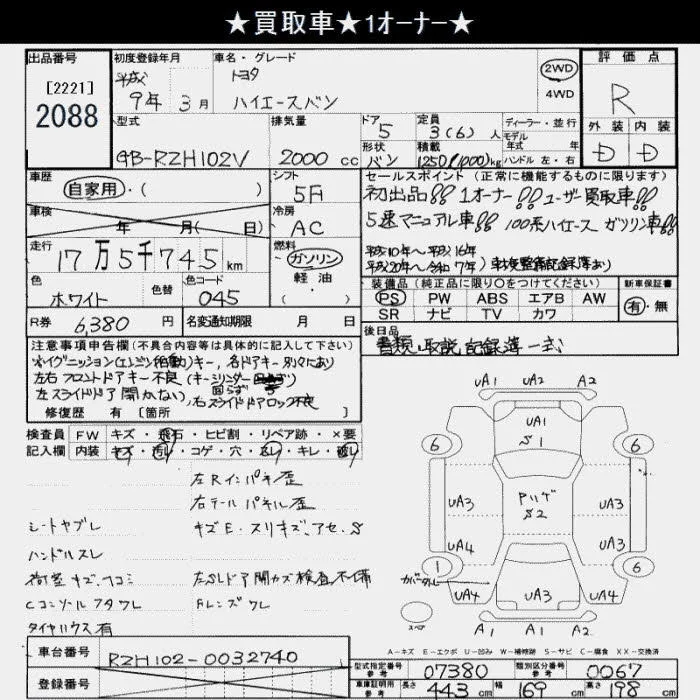 ★買取車★1オーナー★
出品番号
[2221]
2088
初度登録年月
平成
9年 3月
車名・グレード
トヨタ
ハイエースバン
2WD
4WD
評価点
R
外装 内装
D D
型式
GB-RZH102V
排気量
2000 cc
ドア
5
形状
バン
定員
3(6)人
積載
1250(1000)kg
ディーラー・並行
モデル
年式 年
ハンドル 左・右
車歴
自家用・( )
車検
年 月( 日)
走行
17万5千745 km
色
ホワイト
色替
カラーコード
045
R券
6,380 円
名変通知期限 月 日
シフト
5F
冷房
AC
燃料
ガソリン
軽油
( )
セールスポイント(正常に機能するものに限ります)
初出品!! 1オーナー!! ユーザー買取車!!
5速マニュアル車!! 100系ハイエース ガソリン車!!
平成10年〜平成16年
平成20年〜令和7年) 車検整備記録簿あり
装備品(純正品に限り○をつけてください)
PS PW ABS エアB AW
SR ナビ TV カワ
新車保証書
有・無
後日品
書類、取説 記録簿 一式
注意事項申告欄(不具合内容等は具体的に記入して下さい)
※イグニッション(エンジン始動)キー、各ドアキー別々にあり
左右フロントドアキー不良(キーシリンダー回らず)
左スライドドア開かない)、右スライドドアロック不良
修復歴 有 [箇所
検査員
記入欄
FW キズ・飛石・ヒビ割・リペア跡・×要
内装 キズ・汚レ・コゲ・穴・スレ・キレ・破レ
左Rインパネ歪
右テールパネル歪
シートヤブレ キズE・スリキズ、アセ・S
ハンドルスレ
荷室キズ、ヘコミ 左SLドア開カズ検査不備
Cコンソルフタワレ Fレンズワレ
タイヤハウス有
UA1 UA2 A1
UA1
S1
6 6
UA3 Pハゲ UA3
S2
UA4 UA3
1 カバータトレ 6
UA4 UA3 UA4
スペア
A1 A1 A2
A−キズ E−エクボ U−凹み W−補修跡 S−サビ C−腐食 XX−交換済
車台番号
RZH102-0032740
登録番号
型式指定番号
参考
07380
類別区分番号
参考
0067
車庫証明用
参考
長さ 443 cm 幅 169 cm 高さ 198 cm